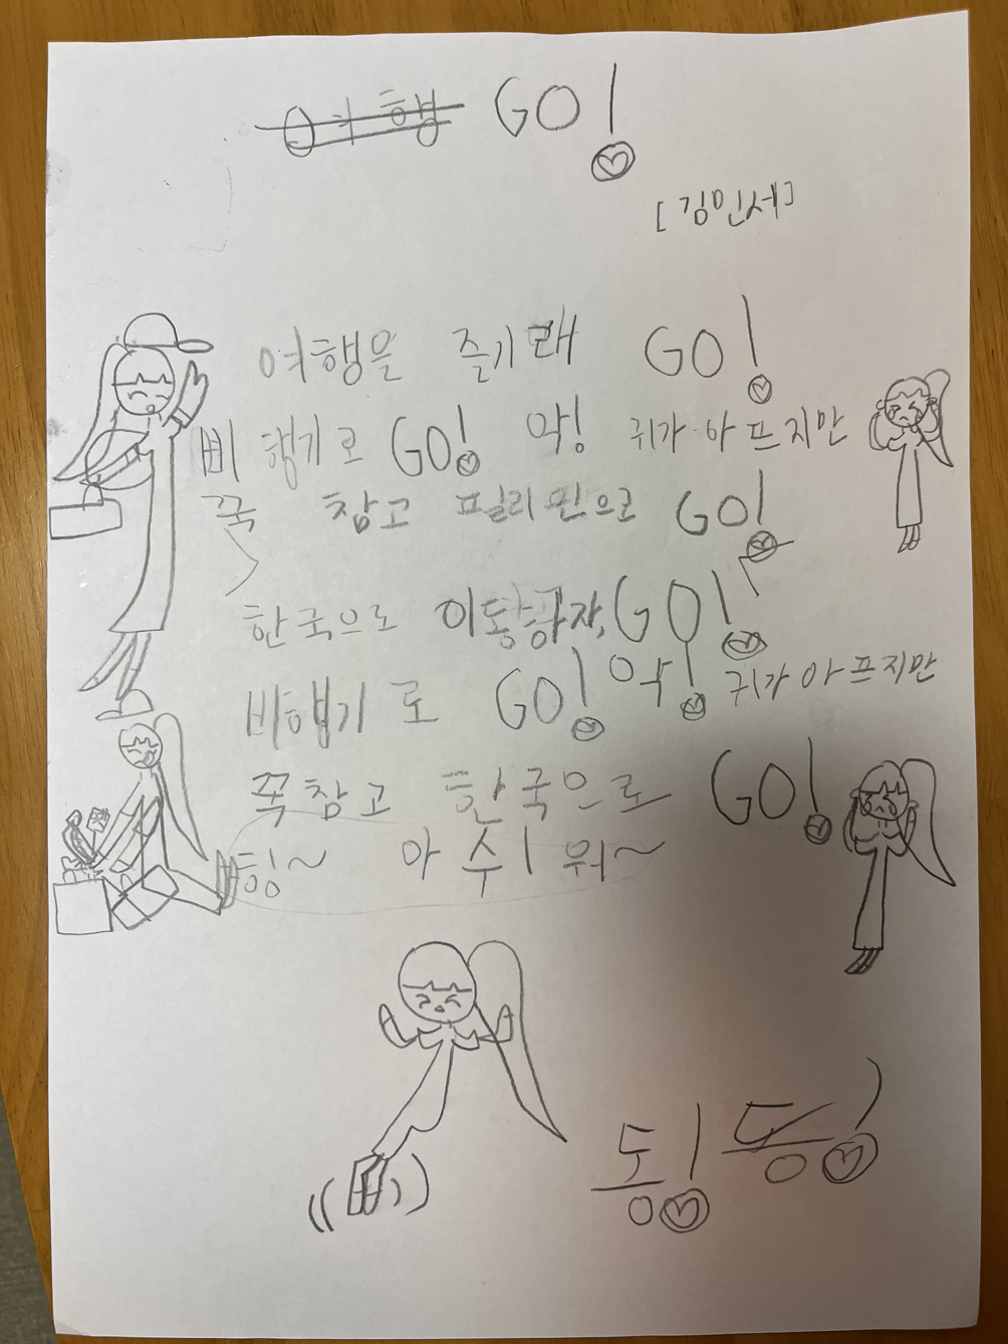 여행 GO!
[김민세]
여행을 즐기래 GO!
비행기로 GO! 악! 귀가 아프지만
꾹 참고 필리핀으로 GO!
한국으로 이동하자, GO!
비행기로 GO! 악! 귀가 아프지만
꾹참고 한국으로 GO!
힝~ 아수ㅣ워~
동! 동!